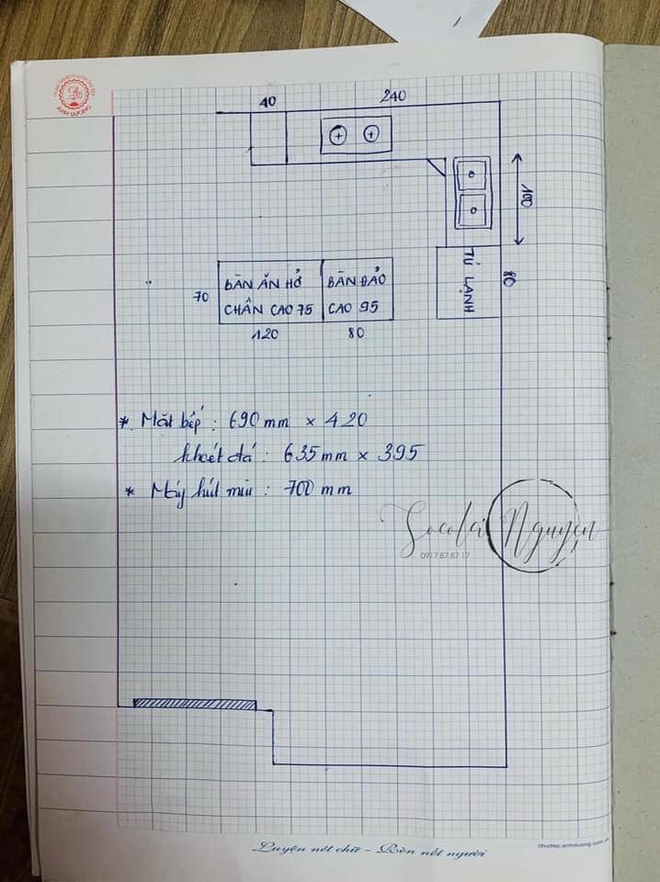 40 240
100
BÀN ĂN HỞ
CHÂN CAO 75
BÀN ĐẢO
CAO 95
70
120
80
TỦ LẠNH
80
* Mặt bếp : 690 mm × 420
khoét đá : 635 mm × 395
* Máy hút mùi : 700 mm
Socola Nguyen
0917 87 87 17
Luyện nét chữ - Rèn nết người